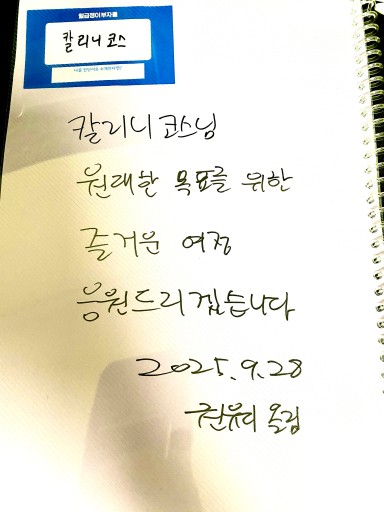 월급쟁이부자들
칼리니코스
칼리니코스님
원대한 목표를 위한
즐거운 여정
응원드리겠습니다
2025.9.28
권유디 올림